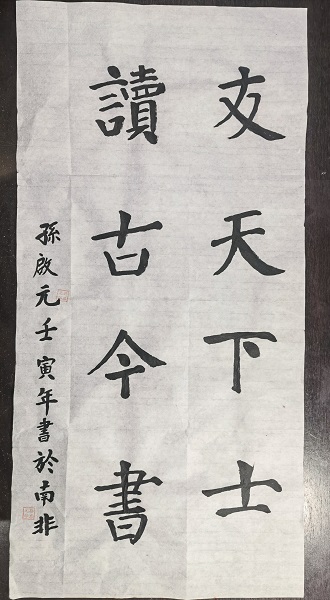 友天下士
讀古今書
孫啟元壬寅年書於南非